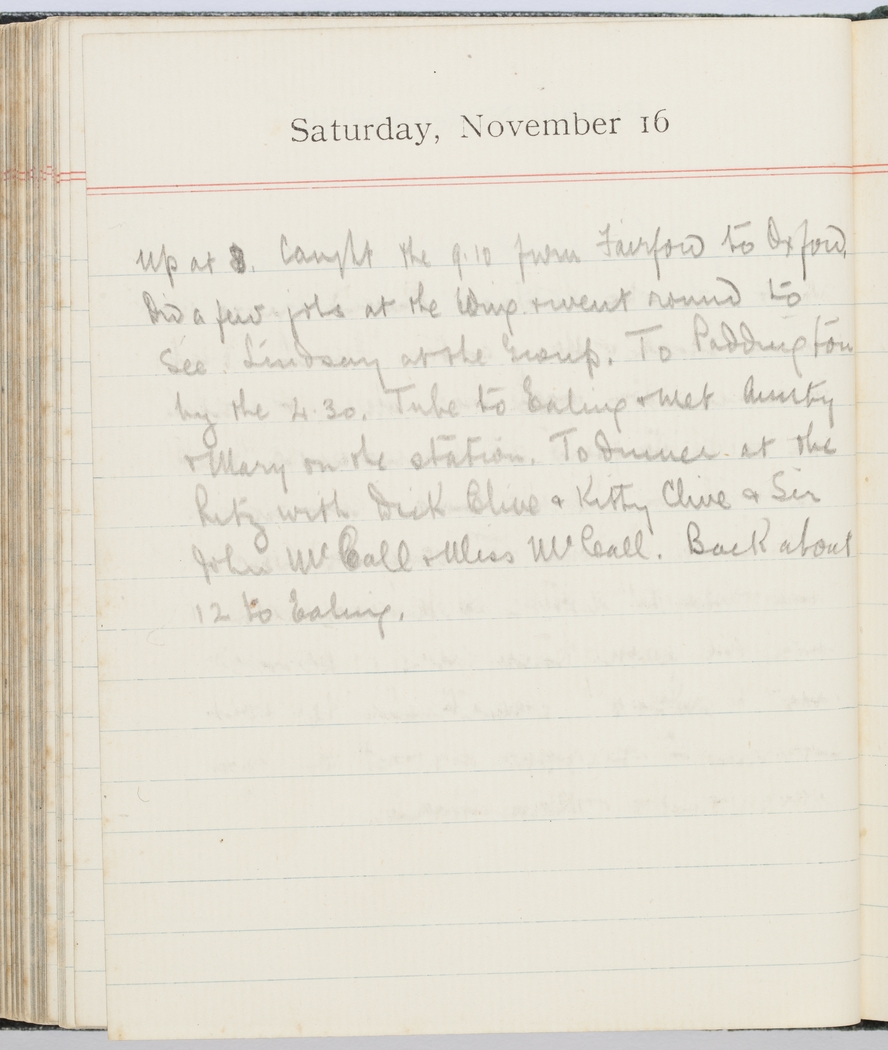 Saturday, November 16
Up at 8. Caught the 9.10 from Fairford to Oxford.
Did a few jobs at the Wing & went round to
See Lindsay at the Group. To Paddington
by the 4.30. Tube to Ealing & met Aunty
& Mary on the station. To dinner at the
Ritz with Dick Clive & Kitty Clive & Sir
John McCall & Miss McCall. Back about
12 to Ealing.